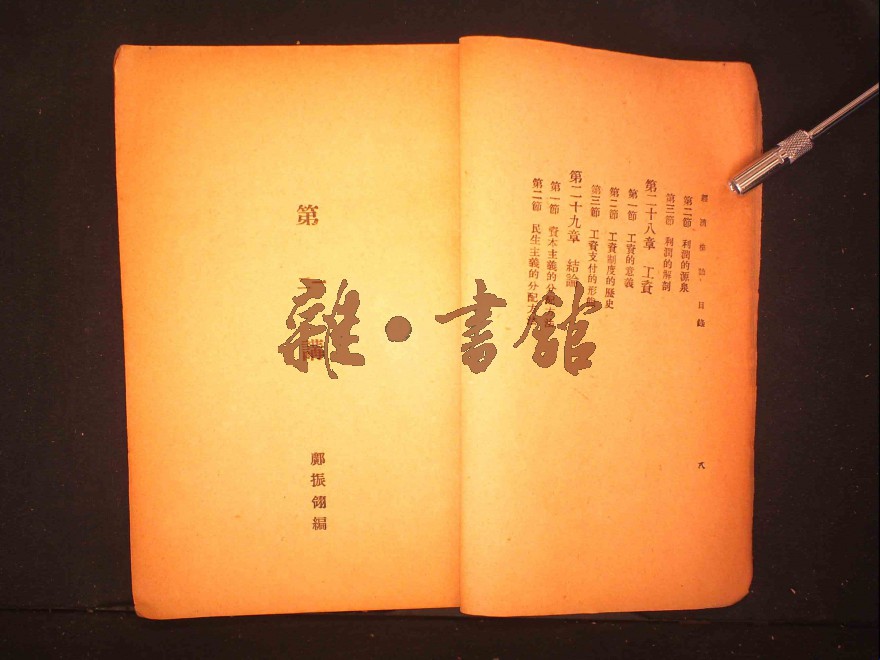 經濟倫話 目錄
第二節 利潤的源泉
第三節 利潤的解剖
第二十八章 工資
第一節 工資的意義
第二節 工資制度的歷史
第三節 工資支付的形
第二十九章 結論
第一節 資本主義的分配
第二節 民生主義的分配方
八
第 講
鄭振 編
雜・書館